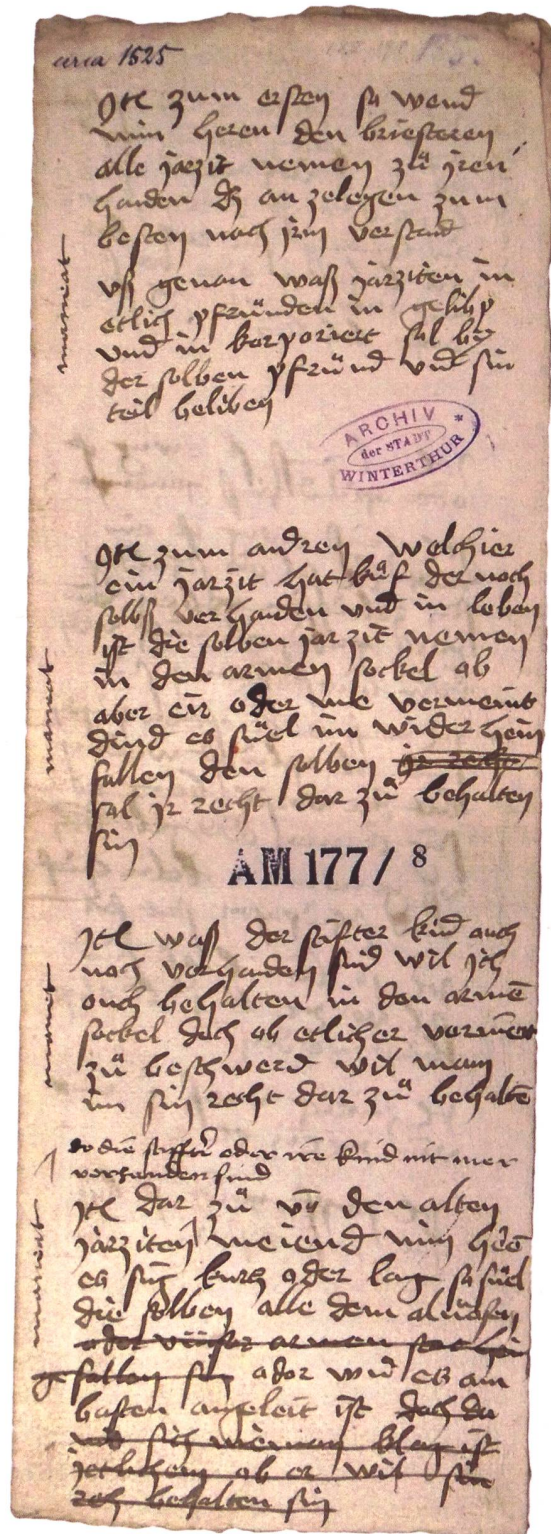 circa 1525
Itē zum ersten so wend
min heren den briesteren
alle jarzit nemen zů jren
handen dz an zelegen zum
besten nach jrm verstand
vß genan waß jarziten in
etlich pfründen in gelibt
und in korporiert sol by
der selben pfründ und sin
teil beliben
manet
ARCHIV
der STADT
WINTERTHUR
Itē zum andren welchier
ein jarzit hat der noch
selbß verhanden und in leben
ist die selben jarzit nemen
in den armen seckel ob
aber eir oder me vermeint
es im wider heim
fallen den selben jr recht
sol jr recht dar zů behalten
sin
manet
AM 177/8
Itē waß der stifter kind auch
noch vorhanden sind wil ich
ouch behalten in den armē
seckel doch ob etlicher
zů beschwerd wil man
im sin recht dar zů behaltē
manet
do die stiffter oder ire kind nit mer
vorhanden sind
Itē dar zů den alten
jarziten meiend min herē
es sig kurtz oder lag so
die selben alle dem almůsen
oder armen
gefallen sin oder wie es am
basten angeleit ist doch da
sich nieman klag ist
jetlichem ob er wil sin
rech behalten sin
manet